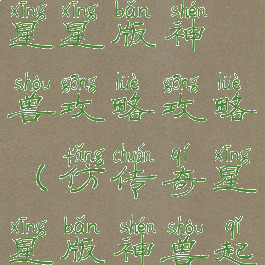 xīng xīng bǎn shén
星星版神
shòu gōng lüè gōng lüè
兽攻略攻略
fǎng chuán qí xīng
（仿传奇星
xīng bǎn shén shòu qǐ
星版神兽起